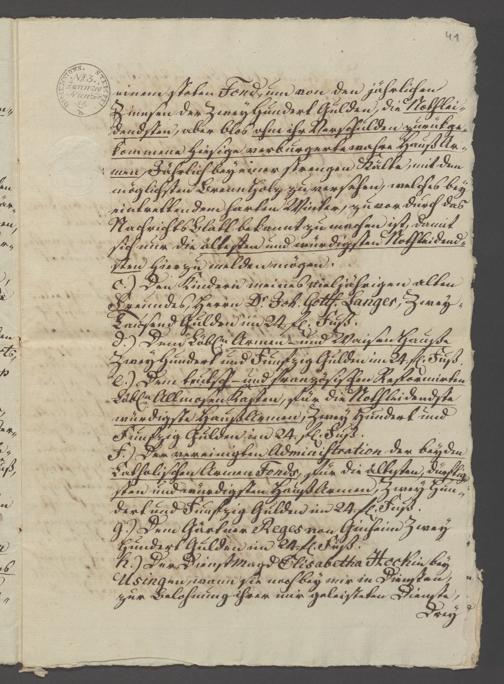 41
einem steten Fond, um von den jährlichen
Zinsen der Zwey Hundert Gulden, die Nothlei-
dendsten, aber blos ohne ihr Verschulden zurückge-
kommene hiesige verbürgerte wahre Haus Ar-
men, Jährlich bey einer strengen Kälte, mit dem
möglichsten Brennholz zu versehen, welches bey
eintrettendem harten Winter, zuvor durch das
Nachrichts Blatt bekannt zu machen ist, damit
sich nur die ältesten und würdigsten Nothleidend-
sten hierzu melden mögen.
c.) Den Kindern meines vieljährigen alten
Freundes Herrn Dr. Joh. Gottf. Langes, Zwey-
Tausend Gulden im 24. fl. Fuß.
d.) Dem Löbl. Armen- und Waisen Hauße
Zwey Hundert und Funfzig Gulden im 24. fl. Fuß.
e.) Dem teutsch- und französischen Reformirten
Löbl. Allmosen Kasten, für die Nothleidendste
würdigste Haus Armen, Zwey Hundert und
Funfzig Gulden im 24. fl. Fuß.
f.) Der vereinigten Administration der beyden
Catholischen Armen Fonds, für die ältesten, dürftig-
sten und würdigsten Haus Armen, Zwey Hun-
dert und Funfzig Gulden im 24. fl. Fuß.
g.) Dem Gärtner Reges von Ginheim Zwey
Hundert Gulden im 24. fl. Fuß.
h.) Der Dienst Magd Elisabetha Heckin bey
Usingen, wann sie noch bey mir in Diensten,
zur Belohnung ihrer mir geleisteten Dienste,
Drey